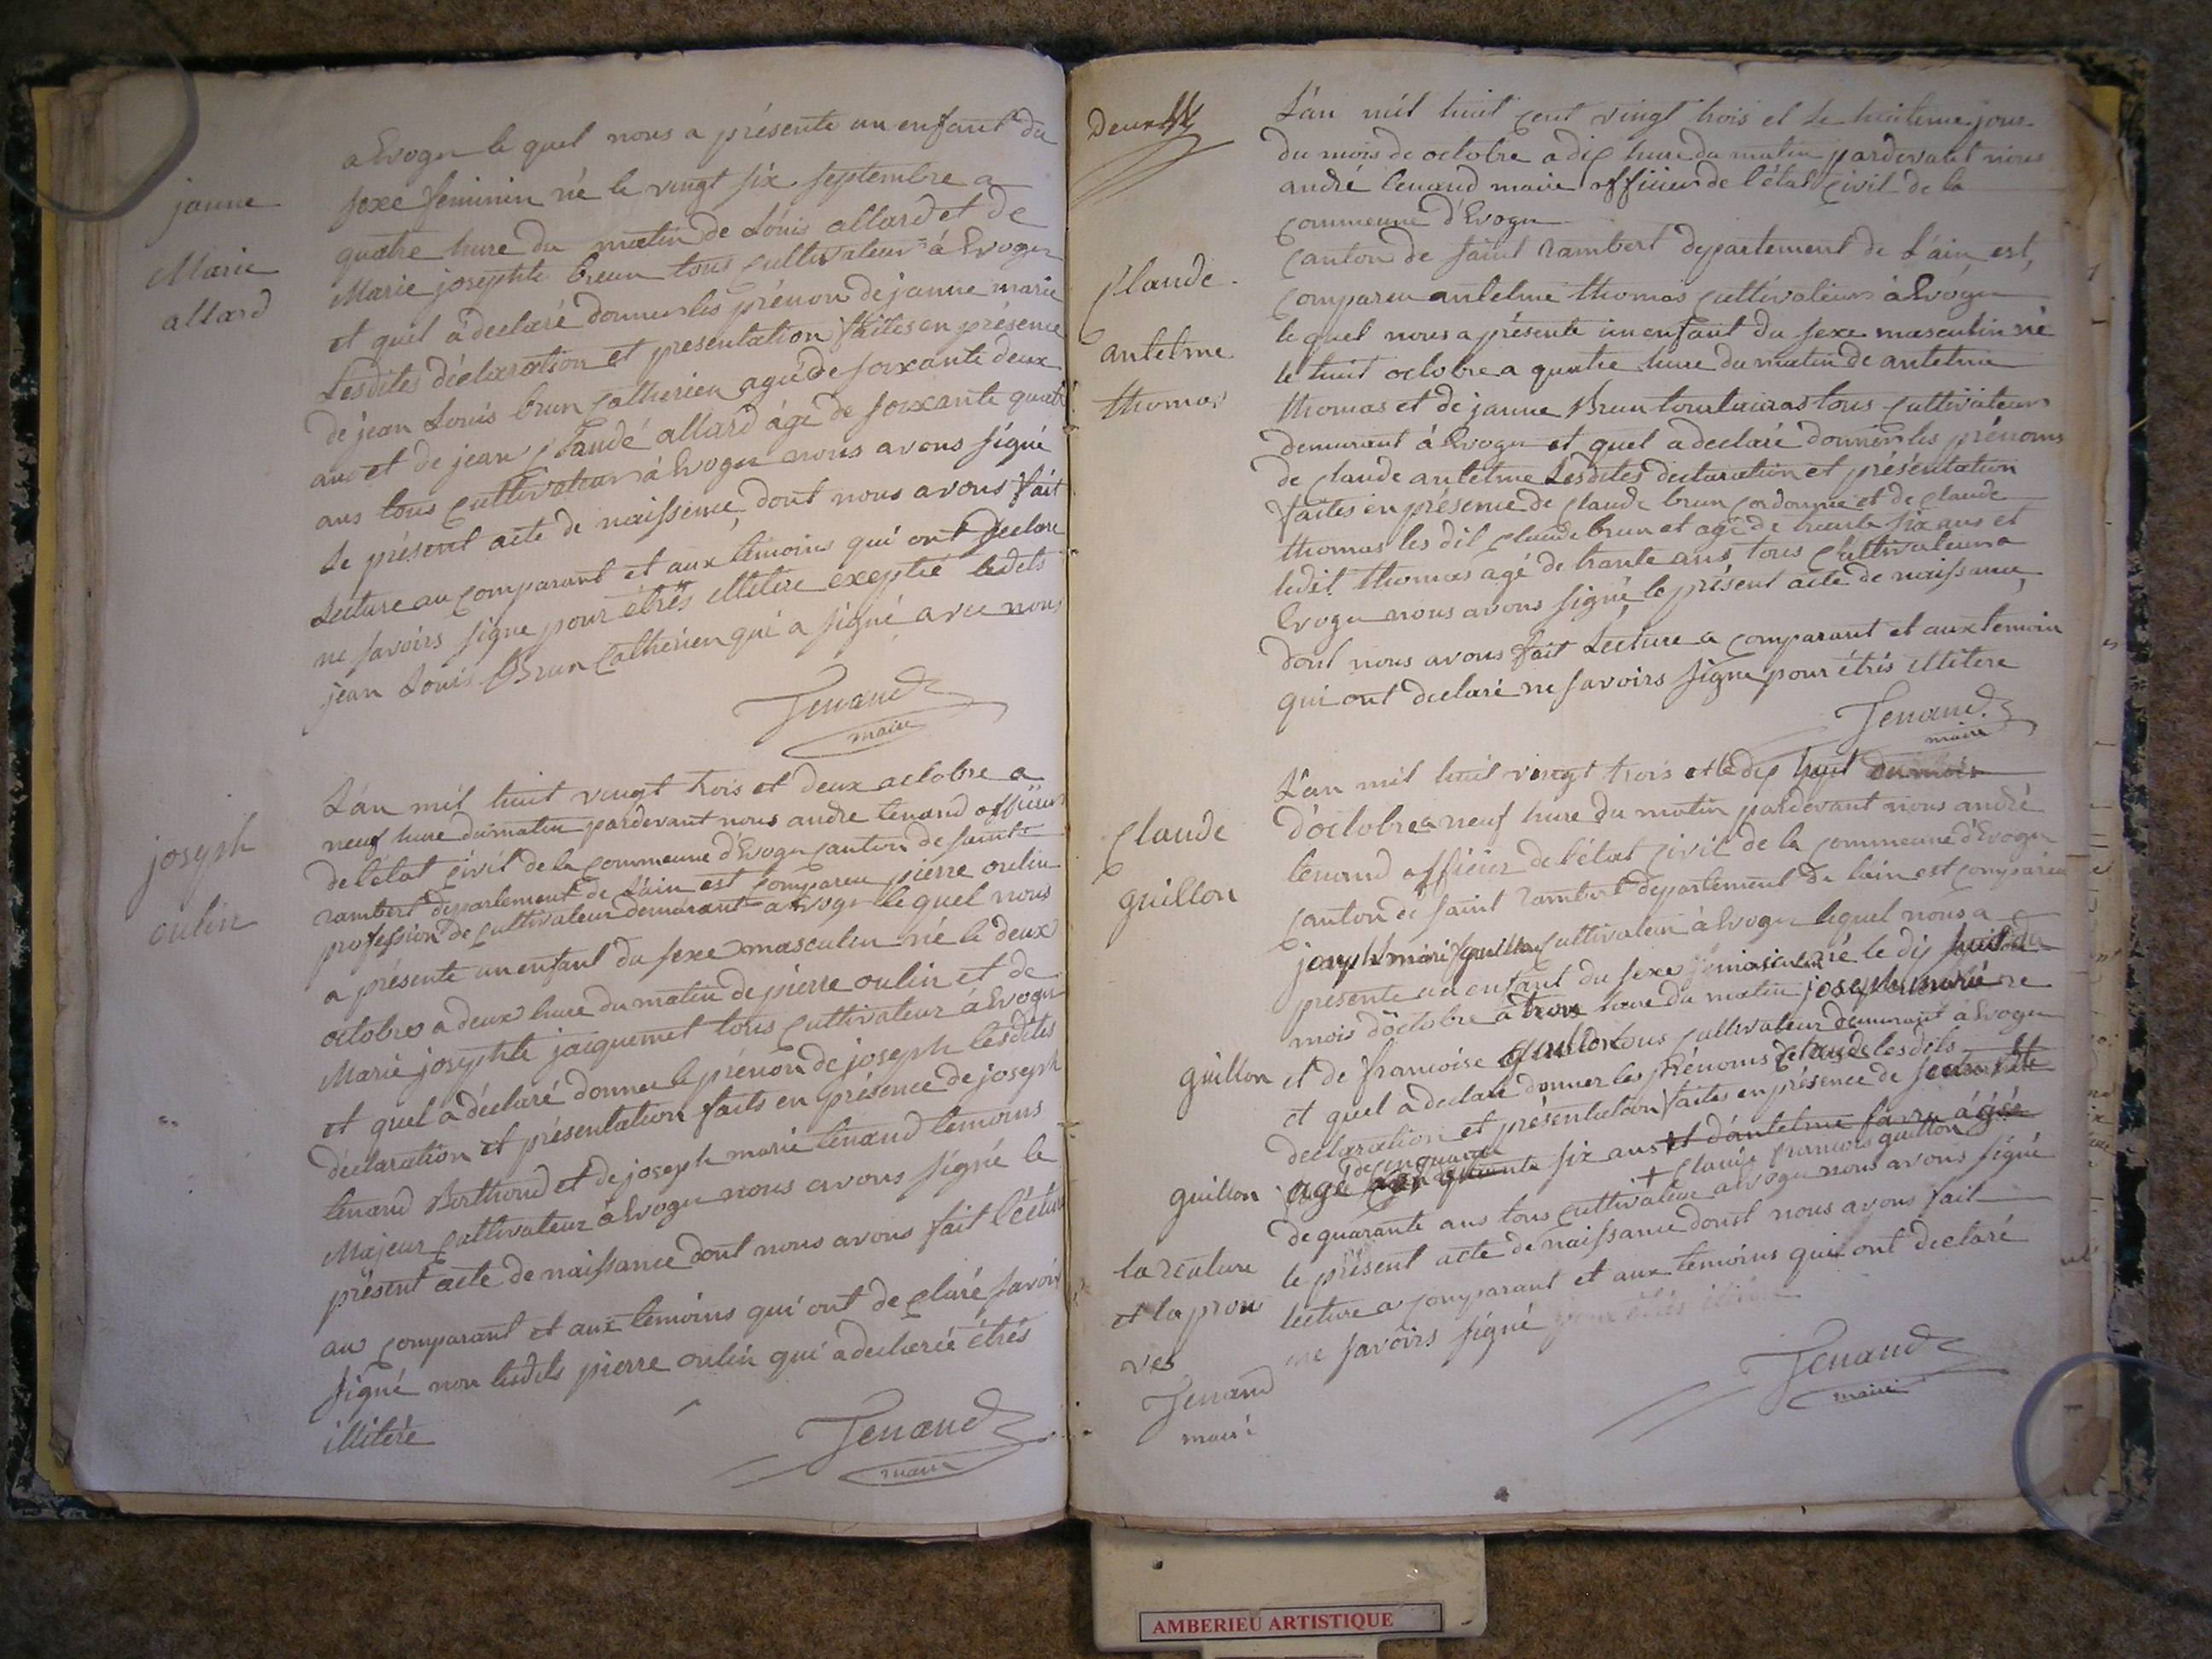 janne
Marie
allard
a Evoge le quel nous a présenté un enfant du
sexe feminin né le vingt six septembre a
quatre hure du matin de Louis allard et de
Marie josephte breun tous cultivateur à Evoge
et quil à declaré donner les prénon de janne marie
Lesdites déclaration et presentation faites en présence
de jean Louis brun Catherien agé de soixante deux
ans et de jean Claude allard agé de soixante quatre
ans tous cultivateur à Evoge nous avons signé
Le présent acte de naissence dont nous avons fait
Lecture au comparant et aux témoins qui ont declare
ne savoirs signe pour étrés illitere exeptié ledets
jean Louis Brun Catherien qui a signé avec nous
Tenand
maire
joseph
oulin
L'an mil huit vingt trois et deux octobre a
neuf hure du matin pardevant nous andré tenand officier
de l'état çivil de la commeune d'Evoge canton de saint
rambert departement de L'ain est compareu pierre oulin
profession de cultivateur demurant a Evoge le quel nous
a présente un enfant du sexe masculin né le deux
octobre a deux hure du matin de pierre oulin et de
Marie josephte jacquemet tous cultivateur à Evoge
et quel a déclaré donner le prénon de joseph lesdites
déclaration et présentation faits en présence de joseph
tenand Berthoud et de joseph marie tenand temoins
Majeur cultivateur à Evoge nous avons signé le
présent acte de naissance dont nous avons fait lécture
au comparant et aux temoins qui ont declaré savoir
signé non ledets pierre oulin qui a declarié étrés
illiteré
Tenand
maire
Deux
Claude
antelme
thomas
L'an mil huit cent vingt trois et le huitieme jour
du mois de octobre a dix hure du matin pardevant nous
andré tenand maire officier de l'état civil de la
commeune d'Evoge
Canton de saint rambert departement de L'ain est,
compareu antelme thomas cultivateur à Evoge
le quel nous a présenté un enfant du sexe masculin né
le huit octobre a quatre hure du matin de antelme
thomas et de janne Brun tous cultivateur
demurant à Evoge et quel a declaré donner les prénoms
de claude antelme Lesdites declaration et présentation
faites en présence de claude brun cordonnie et de claude
thomas les dit claude brun et agé de trente six ans et
ledit thomas agé de trante ans tous cultivateur a
Evoge nous avons signé le présent acte de naissance
dont nous avons fait Lecture a comparant et aux temoin
qui ont declaré ne savoirs signe pour étrés illitere
Tenand
maire
Claude
guillon
L'an mil huit vingt trois et le dix huit du mois
d'octobre a neuf hure du matin pardevant nous andré
tenand officier de l'état civil de la commeune d'Evoge
canton de saint rambert departement de l'ain est compareu
joseph marie guillon cultivateur à Evoge lequel nous a
presente un enfant du sexe masculin né le dix huit du
mois d'octobre a trois hure du matin joseph marie
guillon et de francoise guillon tous cultivateur demurant à Evoge
et quel a declaré donner les prénoms de claude lesdits
declaration et présentation faites en présence de
guillon agé de cinquante six ans et d'antelme favre ágée
+ claude francois guillon
de quarante ans tous cultivateur a Evoge nous avons signé
le présent acte de naissance dont nous avons fait
lecture a comparant et aux temoins qui ont declaré
ne savoirs signé pour étrés
la rature
et laprou
ves
Tenand
maire
Tenand
maire
AMBERIEU ARTISTIQUE